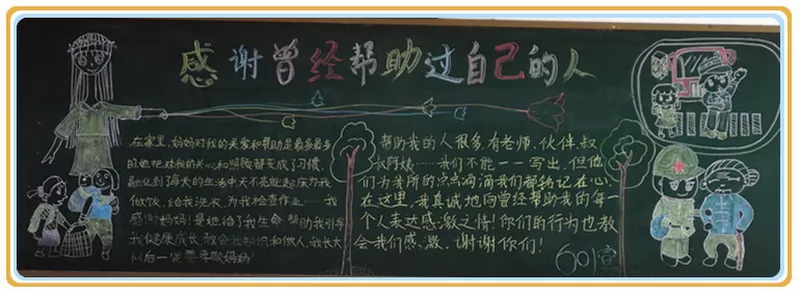 感谢曾经帮助过自己的人
在家里,妈妈对我的关爱和帮助是最多最多
的,她把对我的关心和照顾替变成了习惯,
融化到了每天的生活中天不亮就起床为我
做饭,给我洗衣,为我检查作业……我
感谢妈妈!是她给了我生命,帮助我引导
我健康成长,教会我知识和做人,我长大
以后一定要孝敬妈妈!
帮助我的人很多,有老师、伙伴、叔
叔阿姨……我们不能一一写出,但他
们为我所的点点滴滴我们都铭记在心。
在这里,我真诚地向曾经帮助我的每一
个人表达感激之情!你们的行为也教
会我们感激,谢谢你们!
601宣